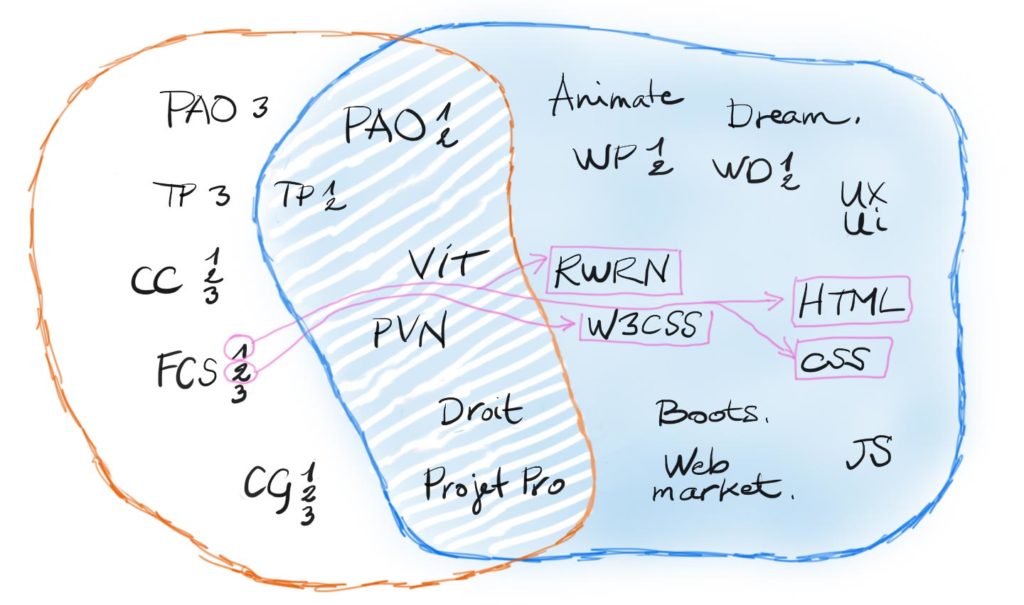 PAO 3
TP 3
CC 1
2
3
FCS 1
2
3
CG 1
2
3
PAO 1
2
TP 1
2
ViT
PVN
Droit
Projet Pro
Animate
Dream.
WP 1
2
WD 1
2
UX
Ui
RWRN
W3CSS
HTML
CSS
Boots.
Web
market.
JS